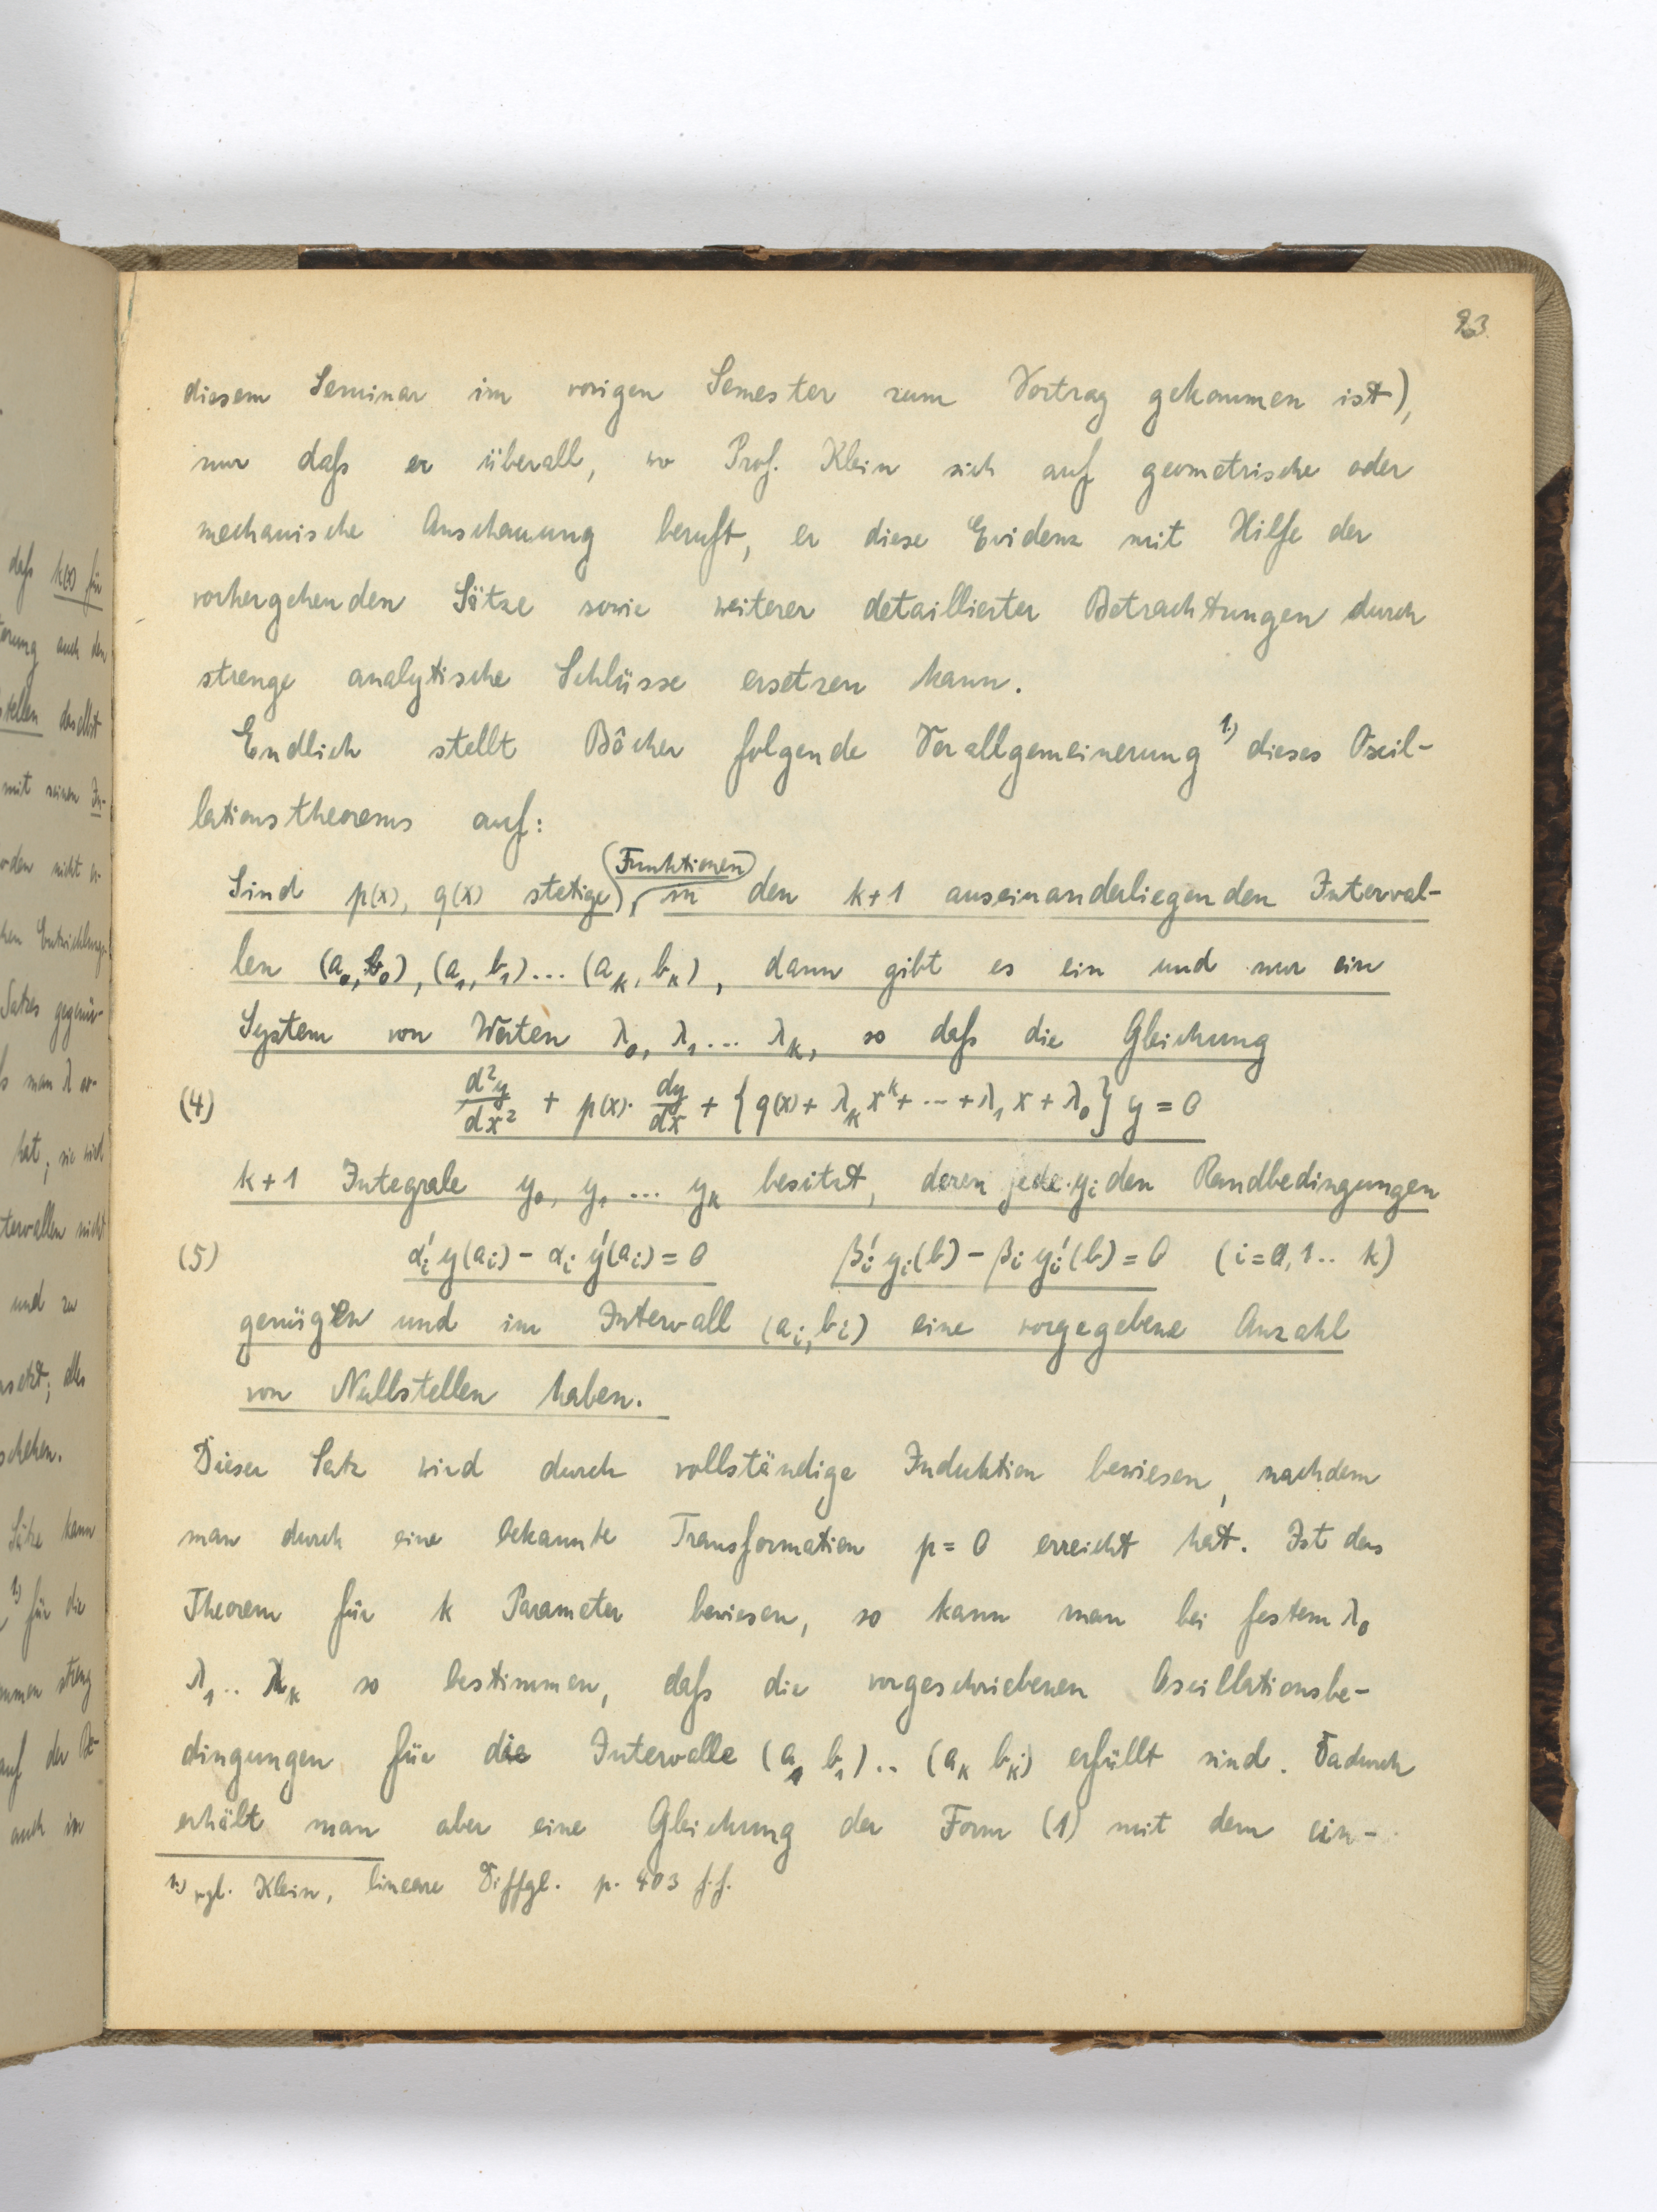 23.
diesem Seminar im vorigen Semester zum Vortrag gekommen ist),
nur daſs er überall, wo Prof. Klein sich auf geometrische oder
mechanische Anschauung beruft, er diese Evidenz mit Hilfe der
vorhergehenden Sätze sowie weiterer detaillierter Betrachtungen durch
strenge analytische Schlüsse ersetzen kann.
Endlich stellt Bôcher folgende Verallgemeinerung 1.) dieses Oscil-
lationstheorems auf:
Sind p(x), q(x) stetige Funktionen in den k+1 auseinanderliegenden Interval-
len (a₀, b₀), (a₁, b₁)... (aₖ, bₖ), dann gibt es ein und nur ein
System von Werten λ₀, λ₁... λₖ, so daſs die Gleichung
(4) d²y/dx² + p(x)· dy/dx + {q(x) + λₖ xᵏ + ··· + λ₁ x + λ₀} y = 0
k+1 Integrale y₀, y₁ ... yₖ besitzt, deren jede yᵢ den Randbedingungen
(5) αᵢ' y(aᵢ) - αᵢ y'(aᵢ) = 0 βᵢ' yᵢ(b) - βᵢ yᵢ'(b) = 0 (i=0,1.. k)
genügen und im Intervall (aᵢ, bᵢ) eine vorgegebene Anzahl
von Nullstellen haben.
Dieser Satz wird durch vollständige Induktion bewiesen, nachdem
man durch eine bekannte Transformation p = 0 erreicht hat. Ist das
Theorem für k Parameter bewiesen, so kann man bei festem λ₀
λ₁.. λₖ so bestimmen, daſs die vorgeschriebenen Oscillationsbe-
dingungen für die Intervalle (a₁ b₁).. (aₖ bₖ) erfüllt sind. Dadurch
erhält man aber eine Gleichung der Form (1) mit dem ein-
1.) vgl. Klein, lineare Diffgl. p. 403 f.f.